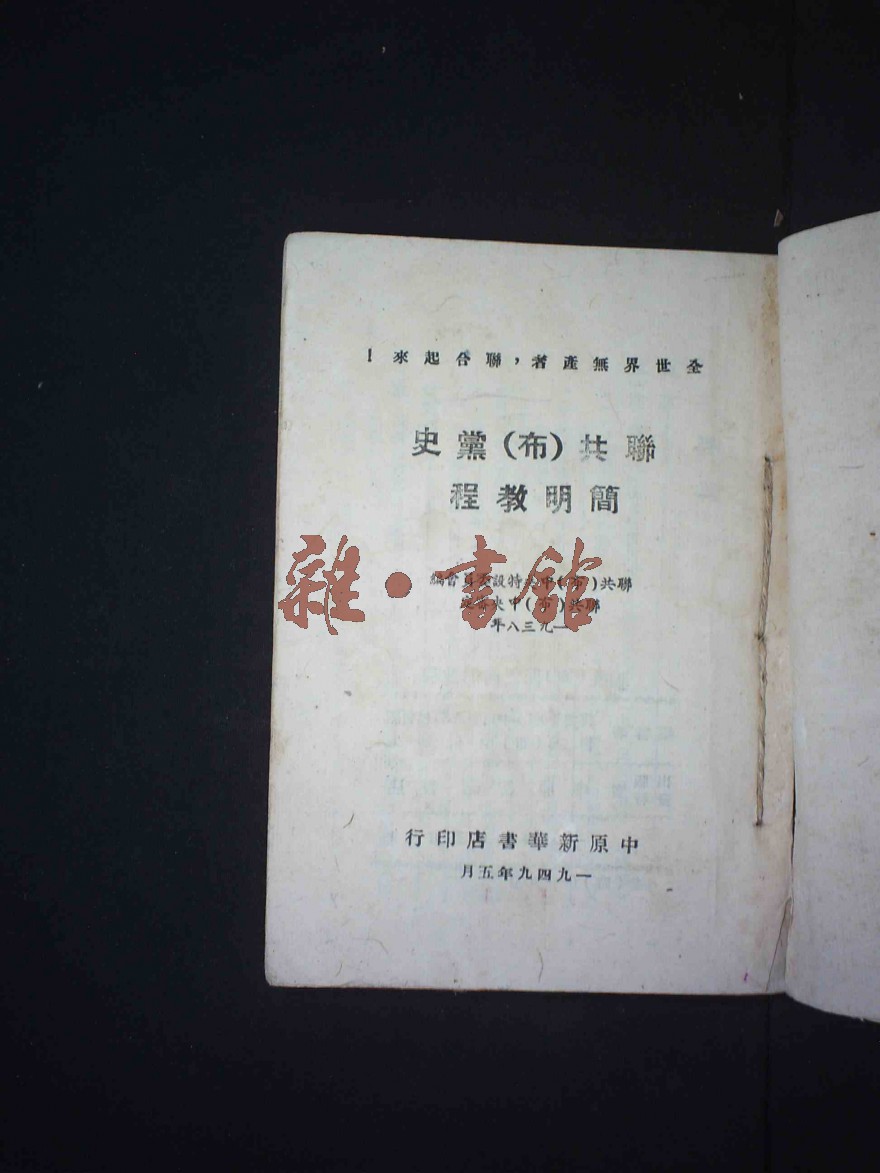 全世界無產者，聯合起來！
聯共(布)黨史
簡明教程
聯共(布)中央特設委員會編
聯共(布)中央審定
一九三八年
雜·書館
中原新華書店印行
一九四九年五月